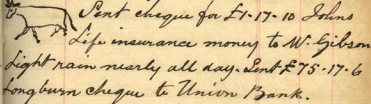 Sent cheque for £1-17-10 Johns
Life insurance money to W. Gibson
Light rain nearly all day. Sent £75-17-6
Longburn cheque to Union Bank.